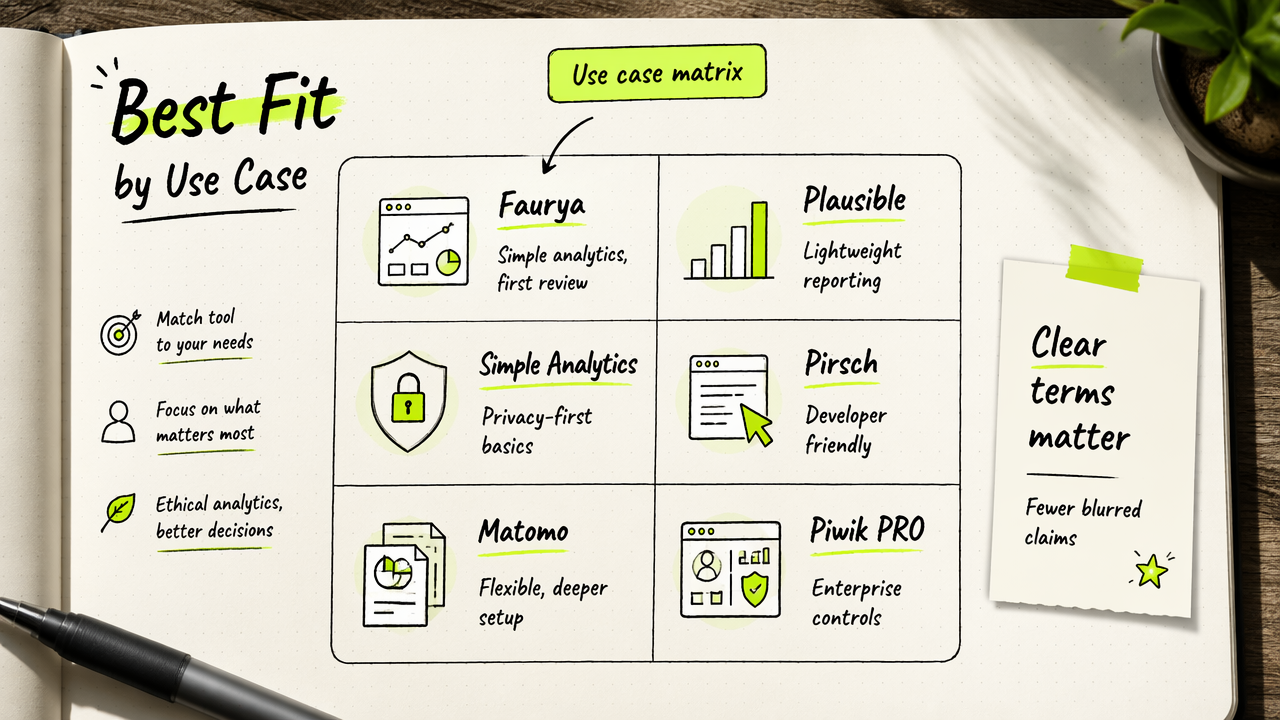 Best Fit
by Use Case
Match tool
to your needs
Focus on what
matters most
Ethical analytics,
better decisions
Use case matrix
Faurya
Simple analytics,
first review
Plausible
Lightweight
reporting
Simple Analytics
Privacy-first
basics
Pirsch
Developer
friendly
Matomo
Flexible, deeper
setup
Piwik PRO
Enterprise
controls
Clear
terms
matter
Fewer blurred
claims